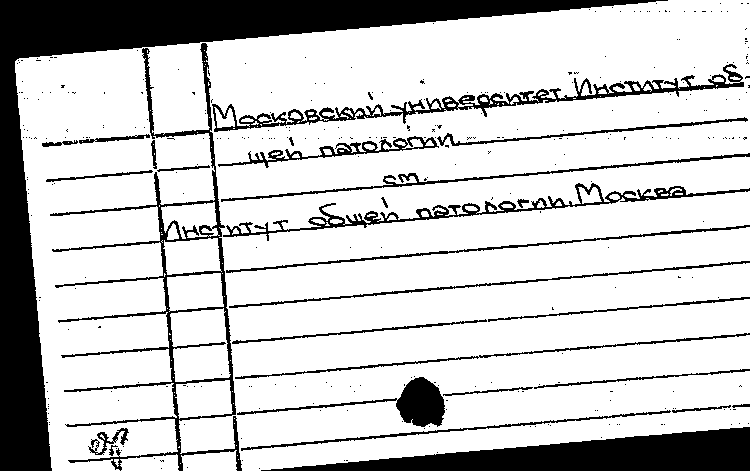 Московский университет. Институт об-
щей патологии.
см.
Институт общей патологии. Москва.